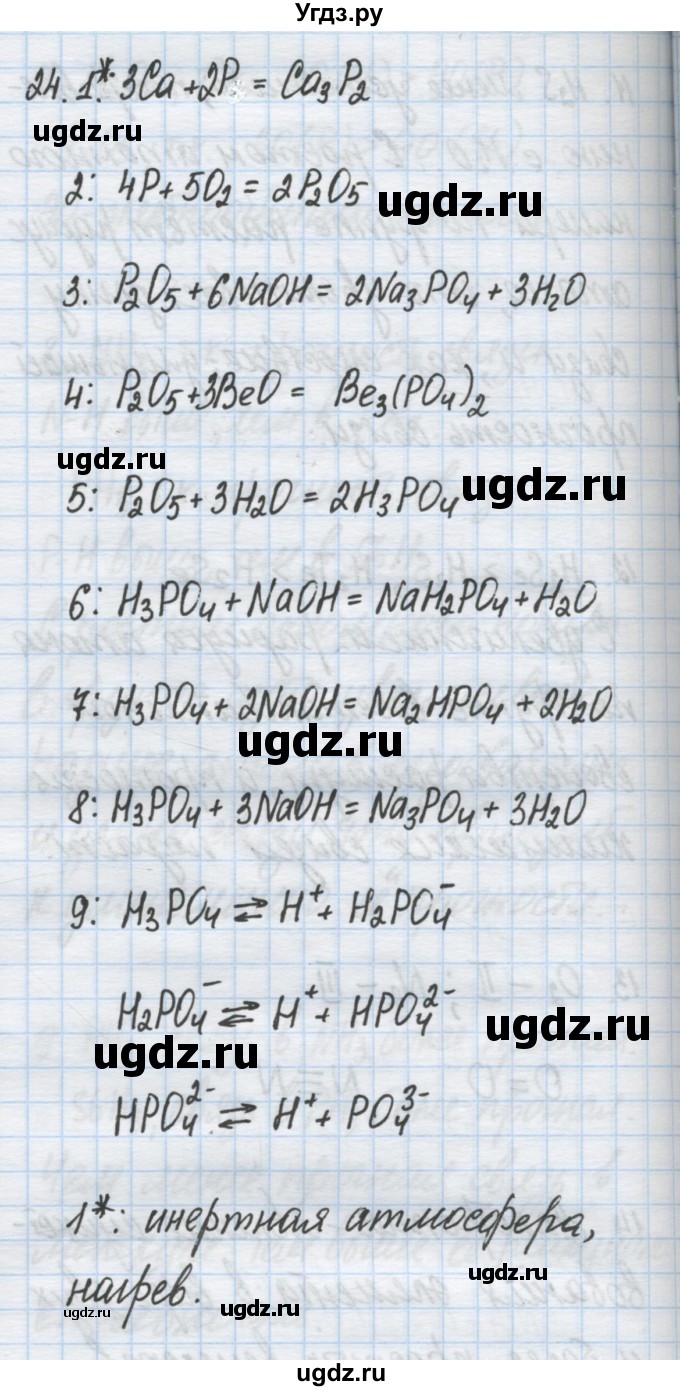 Угдз.ру
24. 1*. 3Ca + 2P = Ca₃P₂
ugdz.ru
2: 4P + 5O₂ = 2P₂O₅
ugdz.ru
3: P₂O₅ + 6NaOH = 2Na₃PO₄ + 3H₂O
4: P₂O₅ + 3BeO = Be₃(PO₄)₂
ugdz.ru
5: P₂O₅ + 3H₂O = 2H₃PO₄
ugdz.ru
6: H₃PO₄ + NaOH = NaH₂PO₄ + H₂O
7: H₃PO₄ + 2NaOH = Na₂HPO₄ + 2H₂O
ugdz.ru
8: H₃PO₄ + 3NaOH = Na₃PO₄ + 3H₂O
9: H₃PO₄ ⇄ H⁺ + H₂PO₄⁻
H₂PO₄⁻ ⇄ H⁺ + HPO₄²⁻
ugdz.ru
HPO₄²⁻ ⇄ H⁺ + PO₄³⁻
1*: инертная атмосфера,
ugdz.ru
нагрев.
ugdz.ru
ugdz.ru
ugdz.ru